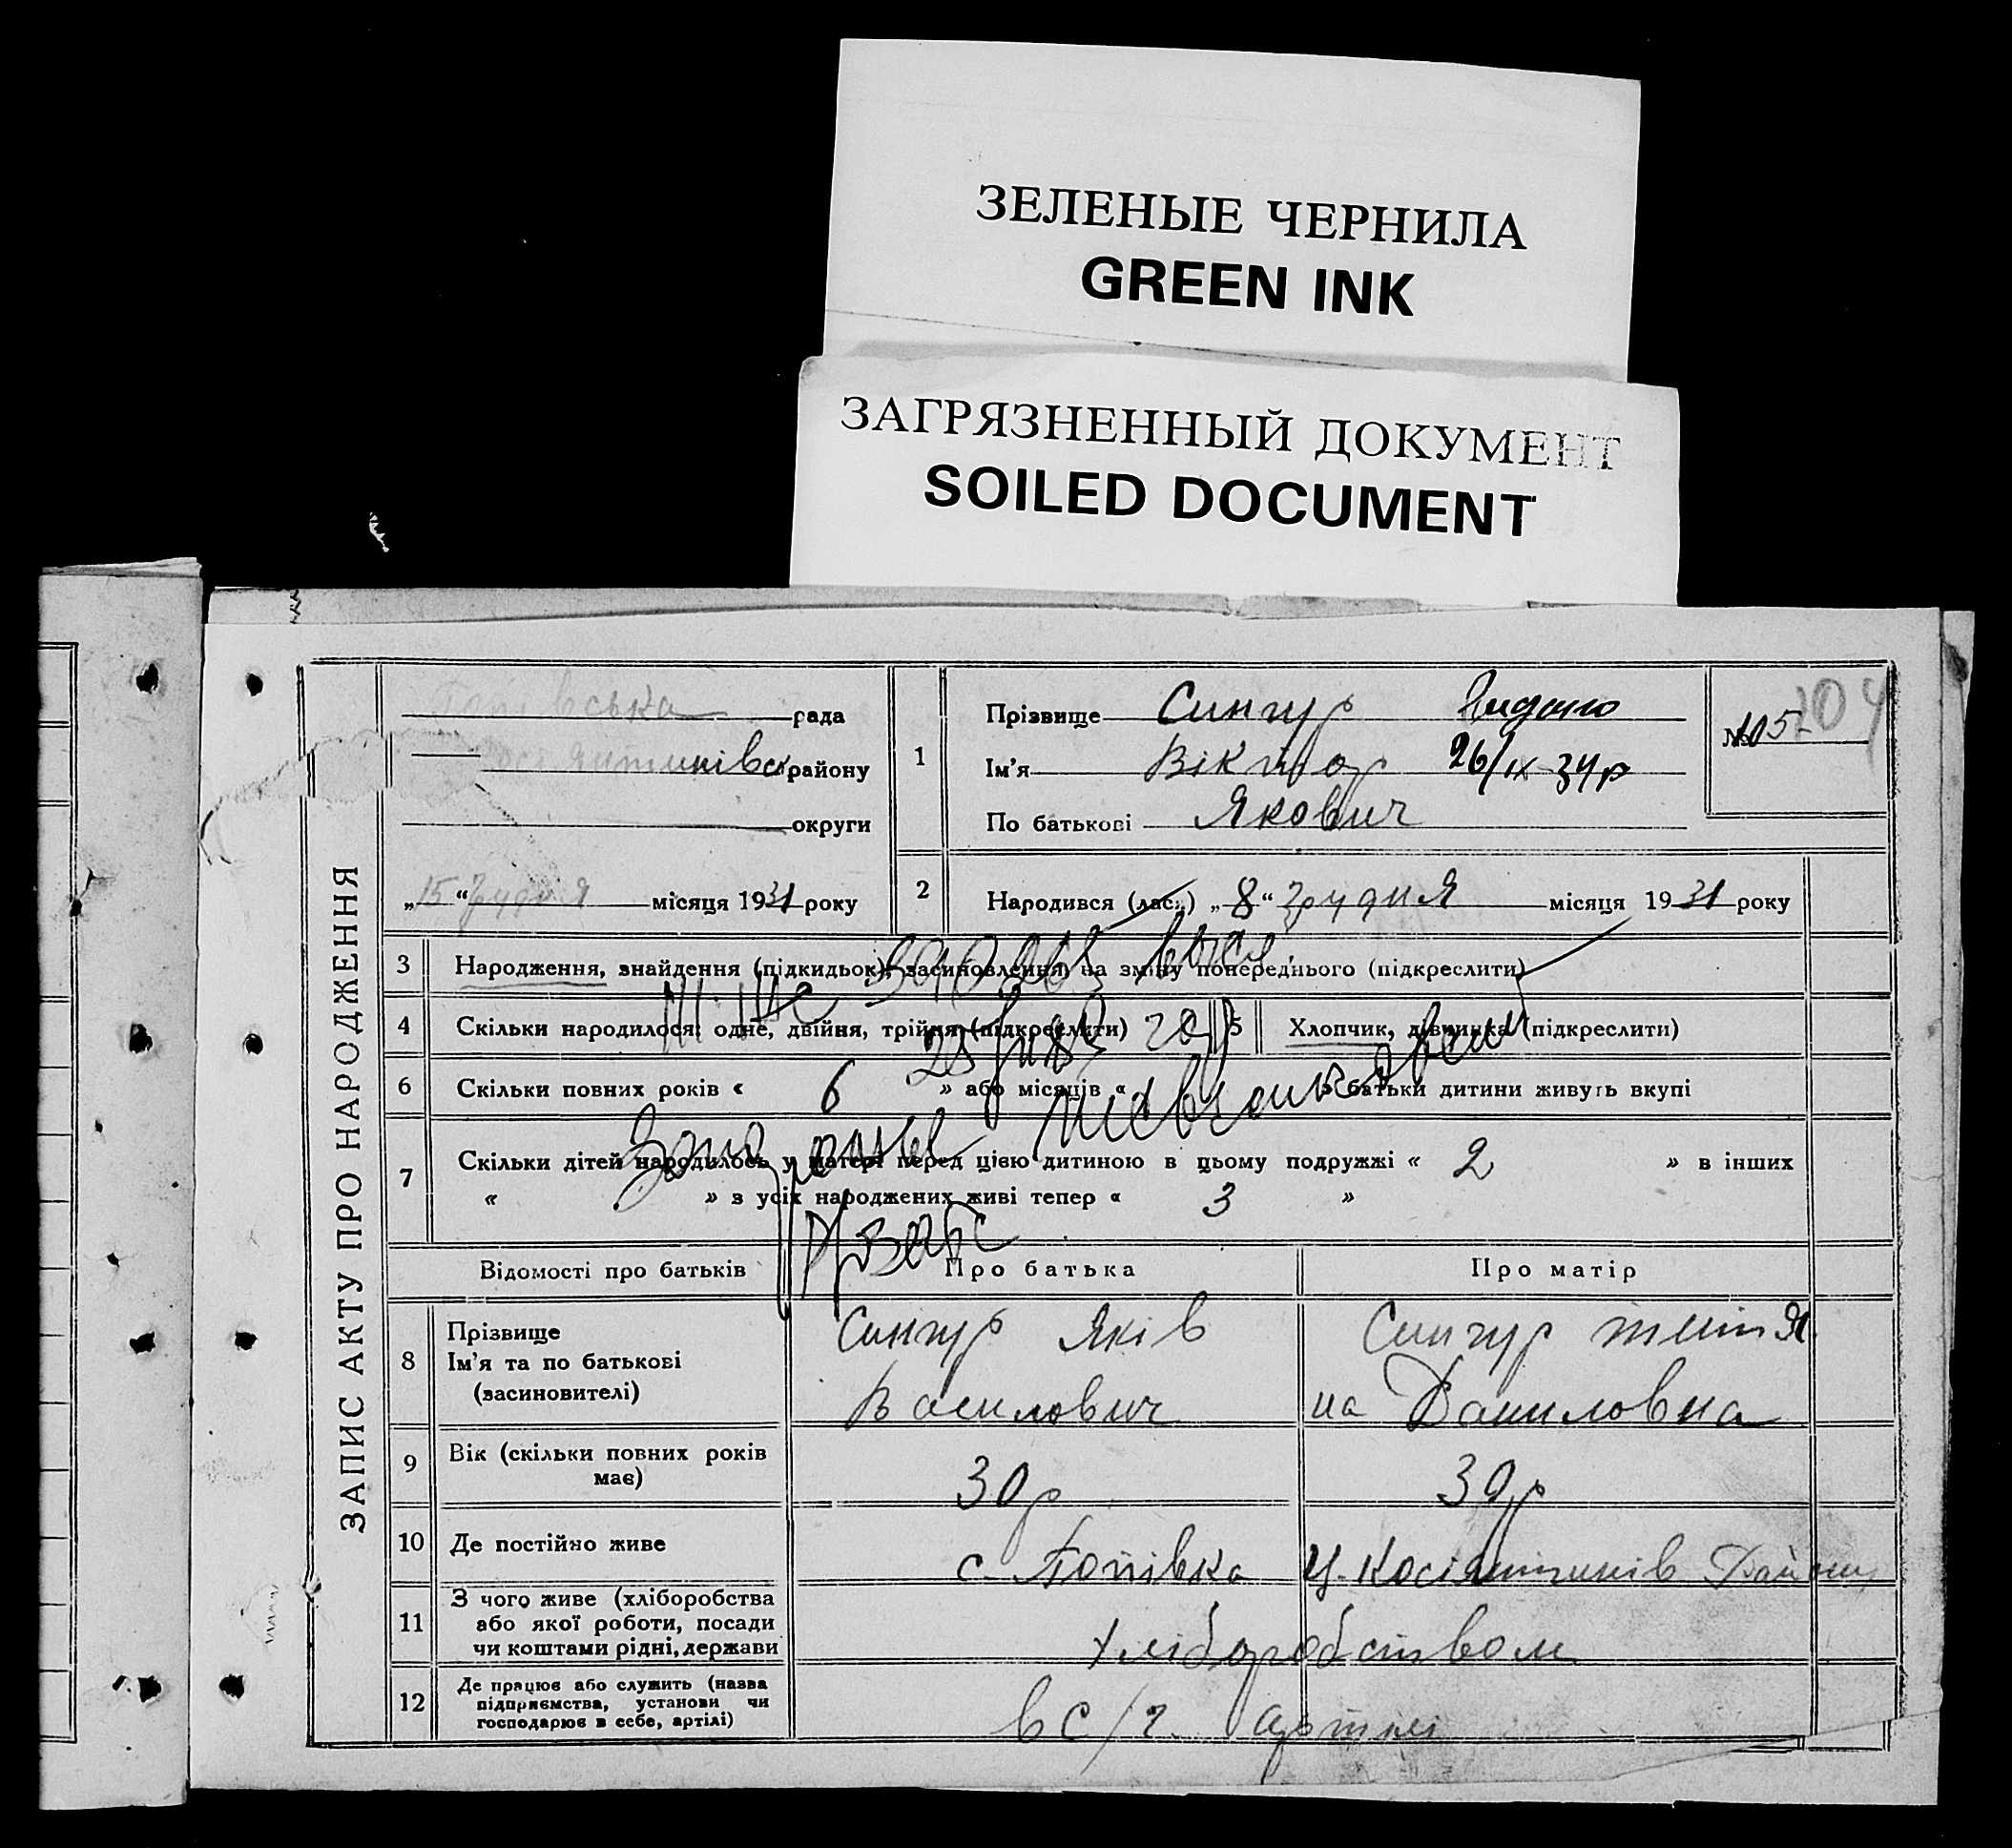 ЗЕЛЕНЫЕ ЧЕРНИЛА
GREEN INK
ЗАГРЯЗНЕННЫЙ ДОКУМЕНТ
SOILED DOCUMENT
ЗАПИС АКТУ ПРО НАРОДЖЕННЯ
Попівська рада
району
округи
„15“ грудня місяця 1931 року
1
Прізвище Сингур
Видано
Ім'я Віктор 26/IX 34 р
По батькові Якович
№ 105
204
2 Народився (лась) „8“ грудня місяця 1931 року
3 Народження, знайдення (підкидьок), засиновлення, на зміну попереднього (підкреслити)
4 Скільки народилося: одне, двійня, трійня (підкреслити) 5 Хлопчик, дівчинка (підкреслити)
6 Скільки повних років « 6 » або місяців « » батьки дитини живуть вкупі
7 Скільки дітей народилось у матері перед цією дитиною в цьому подружжі « 2 » в інших
« » з усіх народжених живі тепер « 3 »
Відомості про батьків Про батька Про матір
8 Прізвище
Ім'я та по батькові
(засиновителі)
Сингур Яків
Василович
Сингур Тетя
на Даниловна
9 Вік (скільки повних років
має)
30 р 30 р
10 Де постійно живе с. Попівка
11 З чого живе (хліборобства
або якої роботи, посади
чи коштами рідні, держави
Хліборобством
12 Де працює або служить (назва
підприємства, установи чи
господарює в себе, артілі)
в с/г. артілі